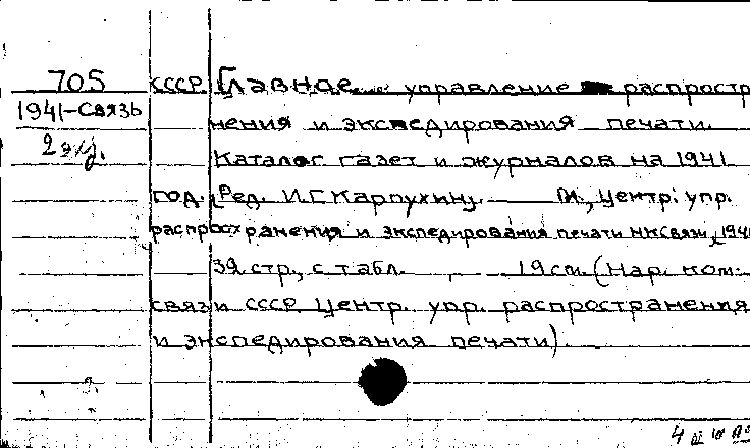 705 СССР. Главное управление распростр
1941-Связь
нения и экспедирования печати.
2 экз.
Каталог газет и журналов на 1941
год. Ред. И.Г. Карпухину. М., Центр. упр.
распространения и экспедирования печати НКСвязи, 1941
32 стр., с табл. 19 см. (Нар. ком.
связи СССР. Центр. упр. распространения
и экспедирования печати).